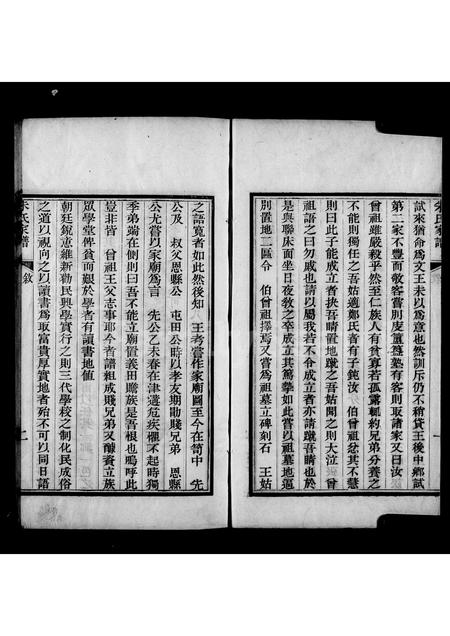 宋氏家譜
試來猶命為文王未以為意也然訓斥仍不稍貸王後中鄉試
第二家不豐而敬客嘗別皮置簋塾有客則取諸家又曰汝
曾祖雖嚴毅乎然至仁族人有貧寡若孤露輒約兄弟分養之
不能則獨任之吾姑適鄭氏者有子鈍汝 伯曾祖忿其不慧
則曰此子能成立者抉吾睛置地蹴之吾姑聞之則大泣 曾
祖語之曰勿戚也請以屬我若不令成立者亦請蹴吾睛也於
是與聯床面坐日夜敎之卒成立其篤摯如此嘗以祖墓地逼
別置地二區令 伯曾祖擇焉又嘗為祖墓立碑刻石 王姑
之語覓者如此然後知 王考嘗作家廟圖至今在笥中 先
公及 叔父恩縣公 屯田公時以孝友期勖賤兄弟 恩縣
公尤嘗以家廟為言 先公乙未春在津遘危疾懼不起時獨
季弟端在側則曰吾不能立廟置義田贍族是吾根也嗚呼此
豈非皆 曾祖王父志事耶今者譜粗成賤兄弟又釀資立族
眾學堂俾貧而艱於學者有讀書地値
朝廷銳意維新勸民興學實行之則三代學校之制化民成俗
之道以視向之以讀書為取富貴厚實地者殆不可以同日語
宋氏家譜 敘 二